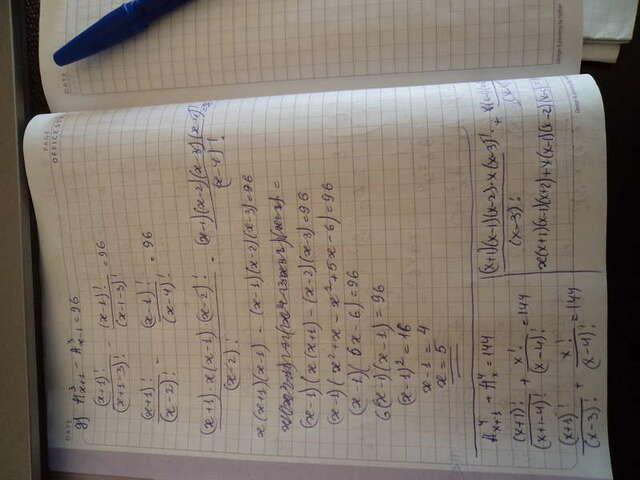 g) A³ₓ₊₁ - A³ₓ₋₁ = 96
(x+1)!/(x+1-3)! - (x-1)!/(x-1-3)! = 96
(x+1)!/(x-2)! - (x-1)!/(x-4)! = 96
(x+1)·x(x-1)(x-2)!/(x-2)! - (x-1)(x-2)(x-3)(x-4)!/(x-4)!
x(x+1)(x-1) - (x-1)(x-2)(x-3)=96
(x-1)(x(x+1)-(x-2)(x-3)=96
(x-1)(x²+x-x²+5x-6)=96
(x-1)(6x-6)=96
6(x-1)(x-1)=96
(x-1)²=16
x-1=4
x=5
A⁴ₓ₊₁ + A⁴ₓ = 144
(x+1)!/(x+1-4)! + x!/(x-4)! = 144
(x+1)!/(x-3)! + x!/(x-4)! = 144
(x+1)(x-1)(x-2)·x(x-3)!/(x-3)! +
x(x+1)(x-1)(x+2)+x(x-1)(x-2)